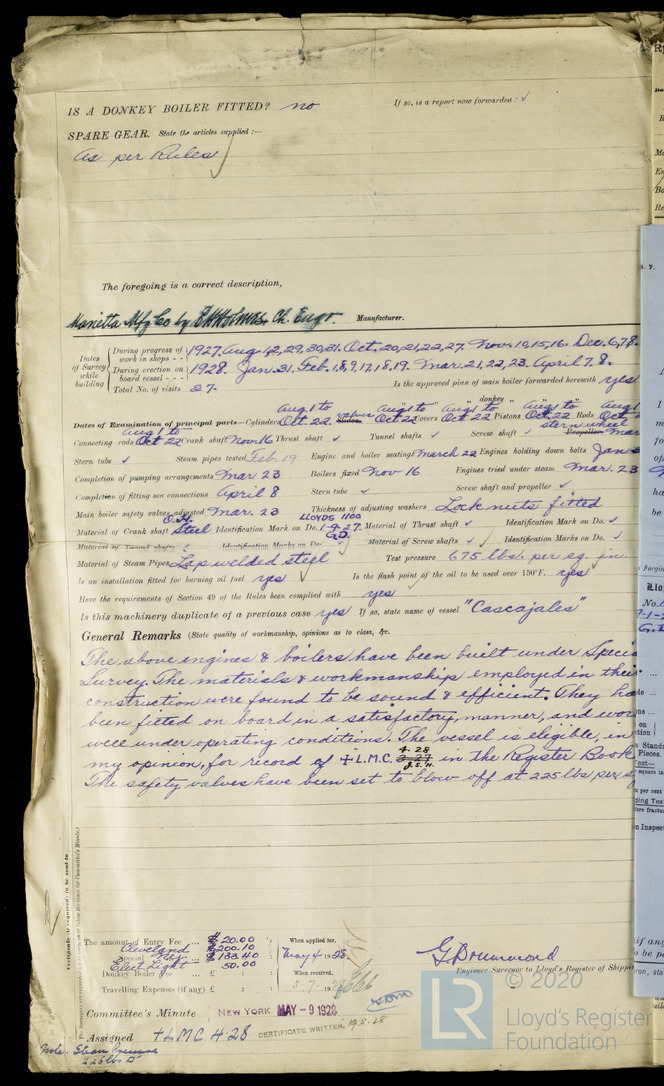 IS A DONKEY BOILER FITTED? no If so, is a report now forwarded? ✓
SPARE GEAR. State the articles supplied :—
As per Rules
The foregoing is a correct description,
Marietta Mfg Co by Ch. Engr. Manufacturer.
Dates of Survey while building
During progress of work in shops - - 1927. Aug. 29, 30, 31. Oct. 20, 21, 22, 27. Nov. 15, 16. Dec. 6, 7, 8.
During erection on board vessel - - - 1928. Jan. 31. Feb. 1, 8, 9, 17, 18, 19. Mar. 21, 22, 23. April 7. 8.
Total No. of visits 27. Is the approved plan of main boiler forwarded herewith yes
" " donkey " "
Dates of Examination of principal parts—Cylinders Aug 1 to Oct. 22. Slides Aug 1 to Oct 22 Covers Aug 1 to Oct 22 Pistons Aug 1 to Oct. 22 Rods Aug 1 Oct.
Connecting rods Aug 1 to Oct 22 Crank shaft Nov. 16 Thrust shaft ✓ Tunnel shafts ✓ Screw shaft ✓ stern wheel Propeller Mar
Stern tube ✓ Steam pipes tested Feb 19 Engine and boiler seatings March 22 Engines holding down bolts Jan 3
Completion of pumping arrangements Mar 23 Boilers fixed Nov 16 Engines tried under steam Mar. 23
Completion of fitting sea connections April 8 Stern tube ✓ Screw shaft and propeller ✓
Main boiler safety valves adjusted Mar. 23 Thickness of adjusting washers Lock nuts fitted
Material of Crank shaft O.H. Steel Identification Mark on Do. LLOYDS 1100 1-9-27. G.D. Material of Thrust shaft ✓ Identification Mark on Do. ✓
Material of Tunnel shafts ✓ Identification Marks on Do. ✓ Material of Screw shafts ✓ Identification Marks on Do. ✓
Material of Steam Pipes Lap welded steel Test pressure 675 lbs. per sq. in.
Is an installation fitted for burning oil fuel yes Is the flash point of the oil to be used over 150°F. yes
Have the requirements of Section 49 of the Rules been complied with yes
Is this machinery duplicate of a previous case yes If so, state name of vessel "Cascajales"
General Remarks (State quality of workmanship, opinions as to class, &c.
The above engines & boilers have been built under Specia
Survey. The materials & workmanship employed in their
construction were found to be sound & efficient. They ha
been fitted on board in a satisfactory manner, and wor
well under operating conditions. The vessel is eligible, in
my opinion, for record of + L.M.C. 4.28 in the Register Book
J.S.H.
The safety valves have been set to blow off at 225 lbs per s
Certificate (if required) to be sent to
The amount of Entry Fee ... $ 20.00 When applied for,
Cleveland $ 200.10 May 4 1928
Special $ 133.40
Elect. Light 50.00 When received,
Donkey Boiler ... £ : : 5.7.19
Travelling Expenses (if any) £ : :
G Drummond
Engineer Surveyor to Lloyd's Register of Shipp
Committee's Minute NEW YORK MAY - 9 1928
CERTIFICATE WRITTEN. 19.5.28
Assigned + LMC 4 28
Note: Steam Pressure
225 lbs
© 2020
LR
Lloyd's Register
Foundation